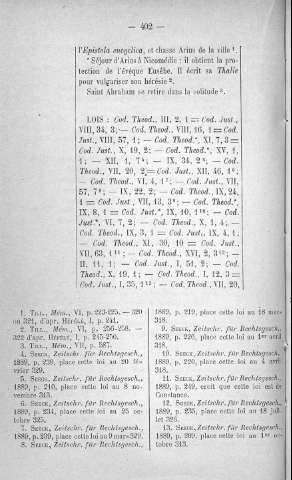 — 402 —
l'Epistola encyclica, et chasse Arius de la ville 1.
Séjour d'Arius à Nicomédie ; il obtient la pro-
tection de l'évêque Eusèbe. Il écrit sa Thalie
pour vulgariser son hérésie 2.
Saint Abraham se retire dans la solitude 3.
LOIS : Cod. Theod., III, 2, 1 = Cod. Just.,
VIII, 34, 3; — Cod. Theod., VIII, 16, 1 = Cod.
Just., VIII, 57, 1; — Cod. Theod., XI, 7, 3 =
Cod. Just., X, 19, 2; — Cod. Theod., XV, 1,
1; — XII, 1, 7; — IX, 34, 2; — Cod.
Theod., VII, 20, 2 = Cod. Just., XII, 46, 1;
— Cod. Theod., VI, 4, 1; — Cod. Just., VII,
57, 7; — IX, 22, 2; — Cod. Theod., IX, 24,
1 = Cod. Just., VII, 13, 3; — Cod. Theod.,
IX, 8, 1 = Cod. Just., IX, 10, 1; — Cod.
Just., VI, 7, 2; — Cod. Theod., X, 1, 4; —
Cod. Theod., IX, 3, 1 = Cod. Just., IX, 4, 1;
— Cod. Theod., XI, 30, 10 = Cod. Just.,
VII, 63, 1; — Cod. Theod., XVI, 2, 3; —
II, 11, 1; — Cod. Just., I, 51, 2; — Cod.
Theod., X, 19, 1; — Cod. Theod., I, 12, 3 =
Cod. Just., I, 35, 1; — Cod. Theod., VII, 20,
1. TILL., Mém., VI, p. 223-225. — 320
ou 321, d'apr. Héréné, I, p. 241.
2. TILL., Mém., VI, p. 256-258. —
322 d'apr. Hermant, I, p. 245-250.
3. TILL., Mém., VII, p. 587.
4. SEECK, Zeitschr. für Rechtsgesch.,
1889, p. 239, place cette loi au 20 fé-
vrier 329.
5. SEECK, Zeitschr. für Rechtsgesch.,
1889, p. 210, place cette loi au 8 no-
vembre 313.
6. SEECK, Zeitschr. für Rechtsgesch.,
1889, p. 234, place cette loi au 25 oc-
tobre 325.
7. SEECK, Zeitschr. für Rechtsgesch.,
1889, p. 239, place cette loi au 9 mars 329.
8. SEECK, Zeitschr. für Rechtsgesch.,
1889, p. 219, place cette loi au 18 mars
318.
9. SEECK, Zeitschr. für Rechtsgesch.,
1889, p. 220, place cette loi au 1er avril
318.
10. SEECK, Zeitschr. für Rechtsgesch.,
1889, p. 220, place cette loi au 4 avril
318.
11. SEECK, Zeitschr. für Rechtsgesch.,
1889, p. 249, croit que cette loi est de
Constance.
12. SEECK, Zeitschr. für Rechtsgesch.,
1889, p. 235, place cette loi au 18 juil-
let 326.
13. SEECK, Zeitschr. für Rechtsgesch.,
1889, p. 209, place cette loi au 1er oc-
tobre 313.